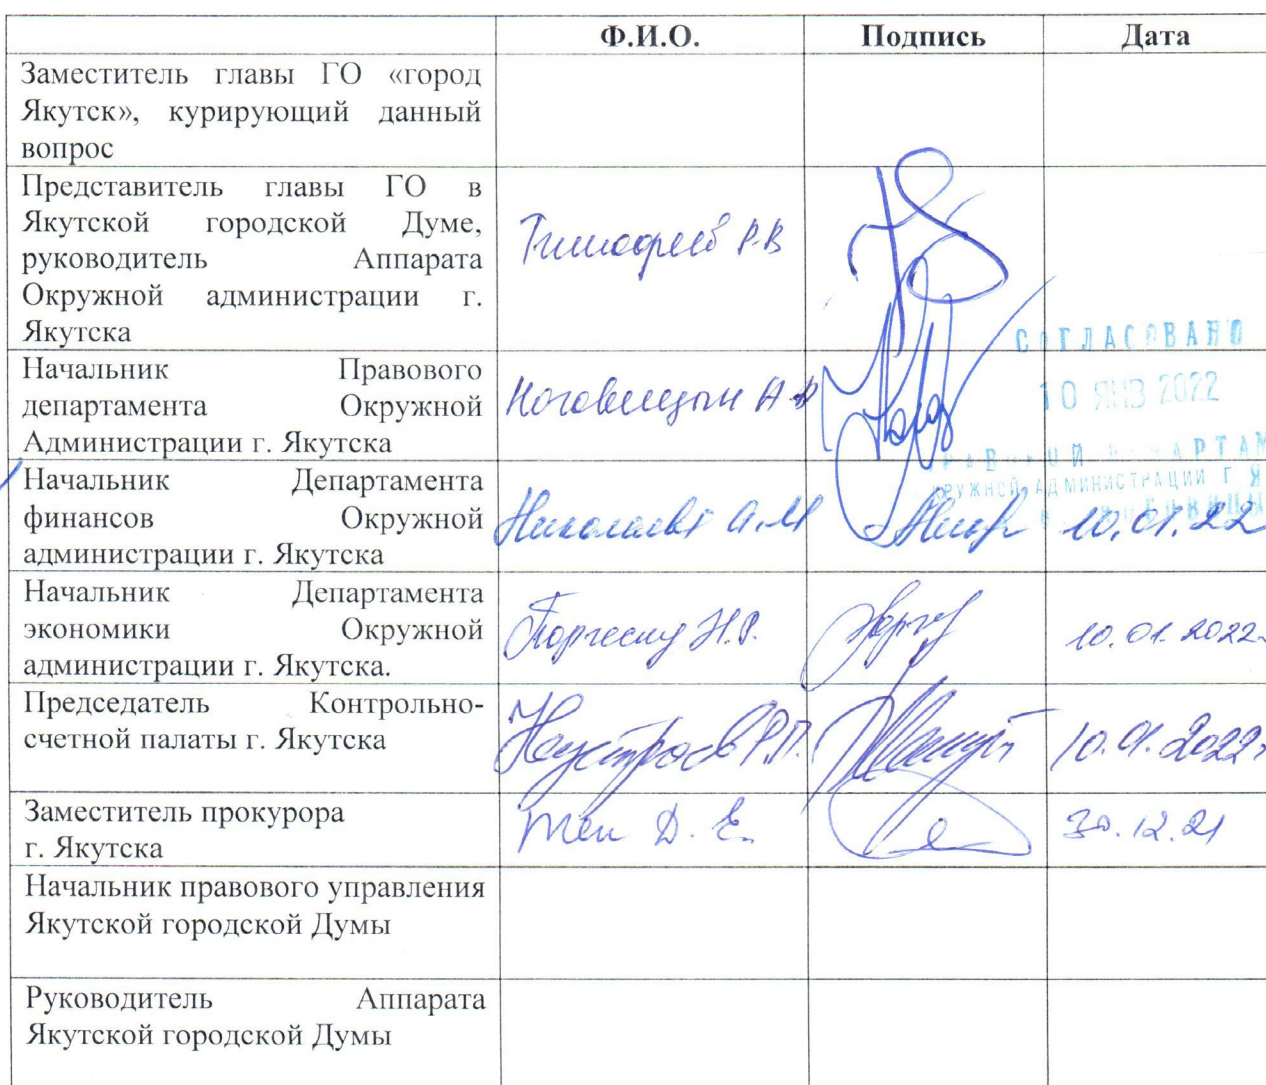 Ф.И.О. Подпись Дата
Заместитель главы ГО «город
Якутск», курирующий данный
вопрос
Представитель главы ГО в
Якутской городской Думе,
руководитель Аппарата
Окружной администрации г.
Якутска
Тимофеев Р.В
СОГЛАСОВАНО
10 ЯНВ 2022
Начальник Правового
департамента Окружной
Администрации г. Якутска
Ноговицын А
Начальник Департамента
финансов Окружной
администрации г. Якутска
Николаева А.М 10.01.22
Начальник Департамента
экономики Окружной
администрации г. Якутска.
Н.Р. 10.01.2022
Председатель Контрольно-
счетной палаты г. Якутска
Неустроев Р.П. 10.01.2022
Заместитель прокурора
г. Якутска
Тен Д. Е. 30.12.21
Начальник правового управления
Якутской городской Думы
Руководитель Аппарата
Якутской городской Думы